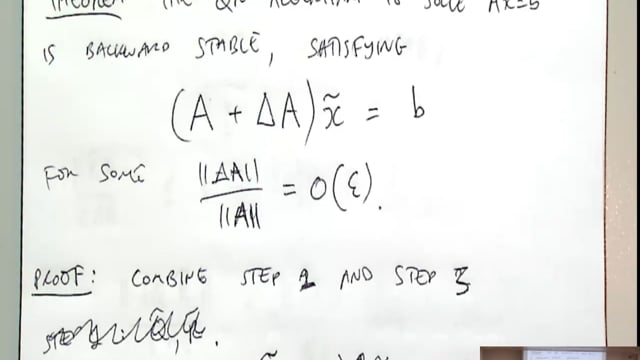 THEOREM THE QR ALGORITHM TO SOLVE Ax=b
IS BACKWARD STABLE, SATISFYING
(A + ΔA)x̃ = b
FOR SOME ||ΔA|| / ||A|| = O(ε).
PROOF: COMBINE STEP 2 AND STEP 3
STEP